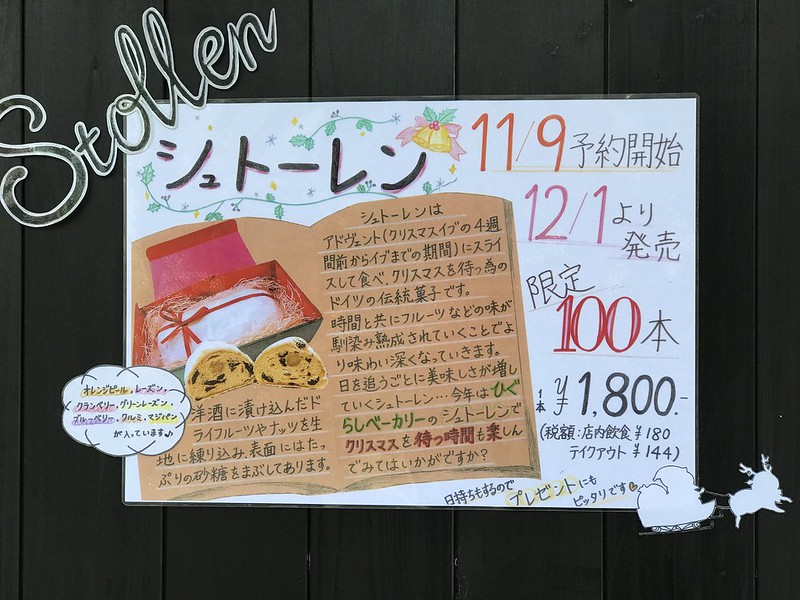 Stollen
シュトーレン
11/9 予約開始
12/1より
発売
限定
100本
1本 ¥1,800.-
(税額:店内飲食¥180
テイクアウト ¥144)
シュトーレンは
アドヴェント(クリスマスイブの4週
間前からイブまでの期間)にスライ
スして食べ、クリスマスを待つ為の
ドイツの伝統菓子です。
時間と共にフルーツなどの味が
馴染み熟成されていくことでよ
り味わい深くなっていきます。
日を追うごとに美味しさが増し
ていくシュトーレン…今年はひぐ
らしベーカリーのシュトーレンで
クリスマスを待つ時間も楽しん
でみてはいかがですか?
オレンジピール、レーズン、
クランベリー、グリーンレーズン、
ブルーベリー、クルミ、マジパン
が入っています♪
洋酒に漬け込んだド
ライフルーツやナッツを生
地に練り込み、表面にはたっ
ぷりの砂糖をまぶしてあります。
日持ちもするので プレゼントにも
ピッタリです